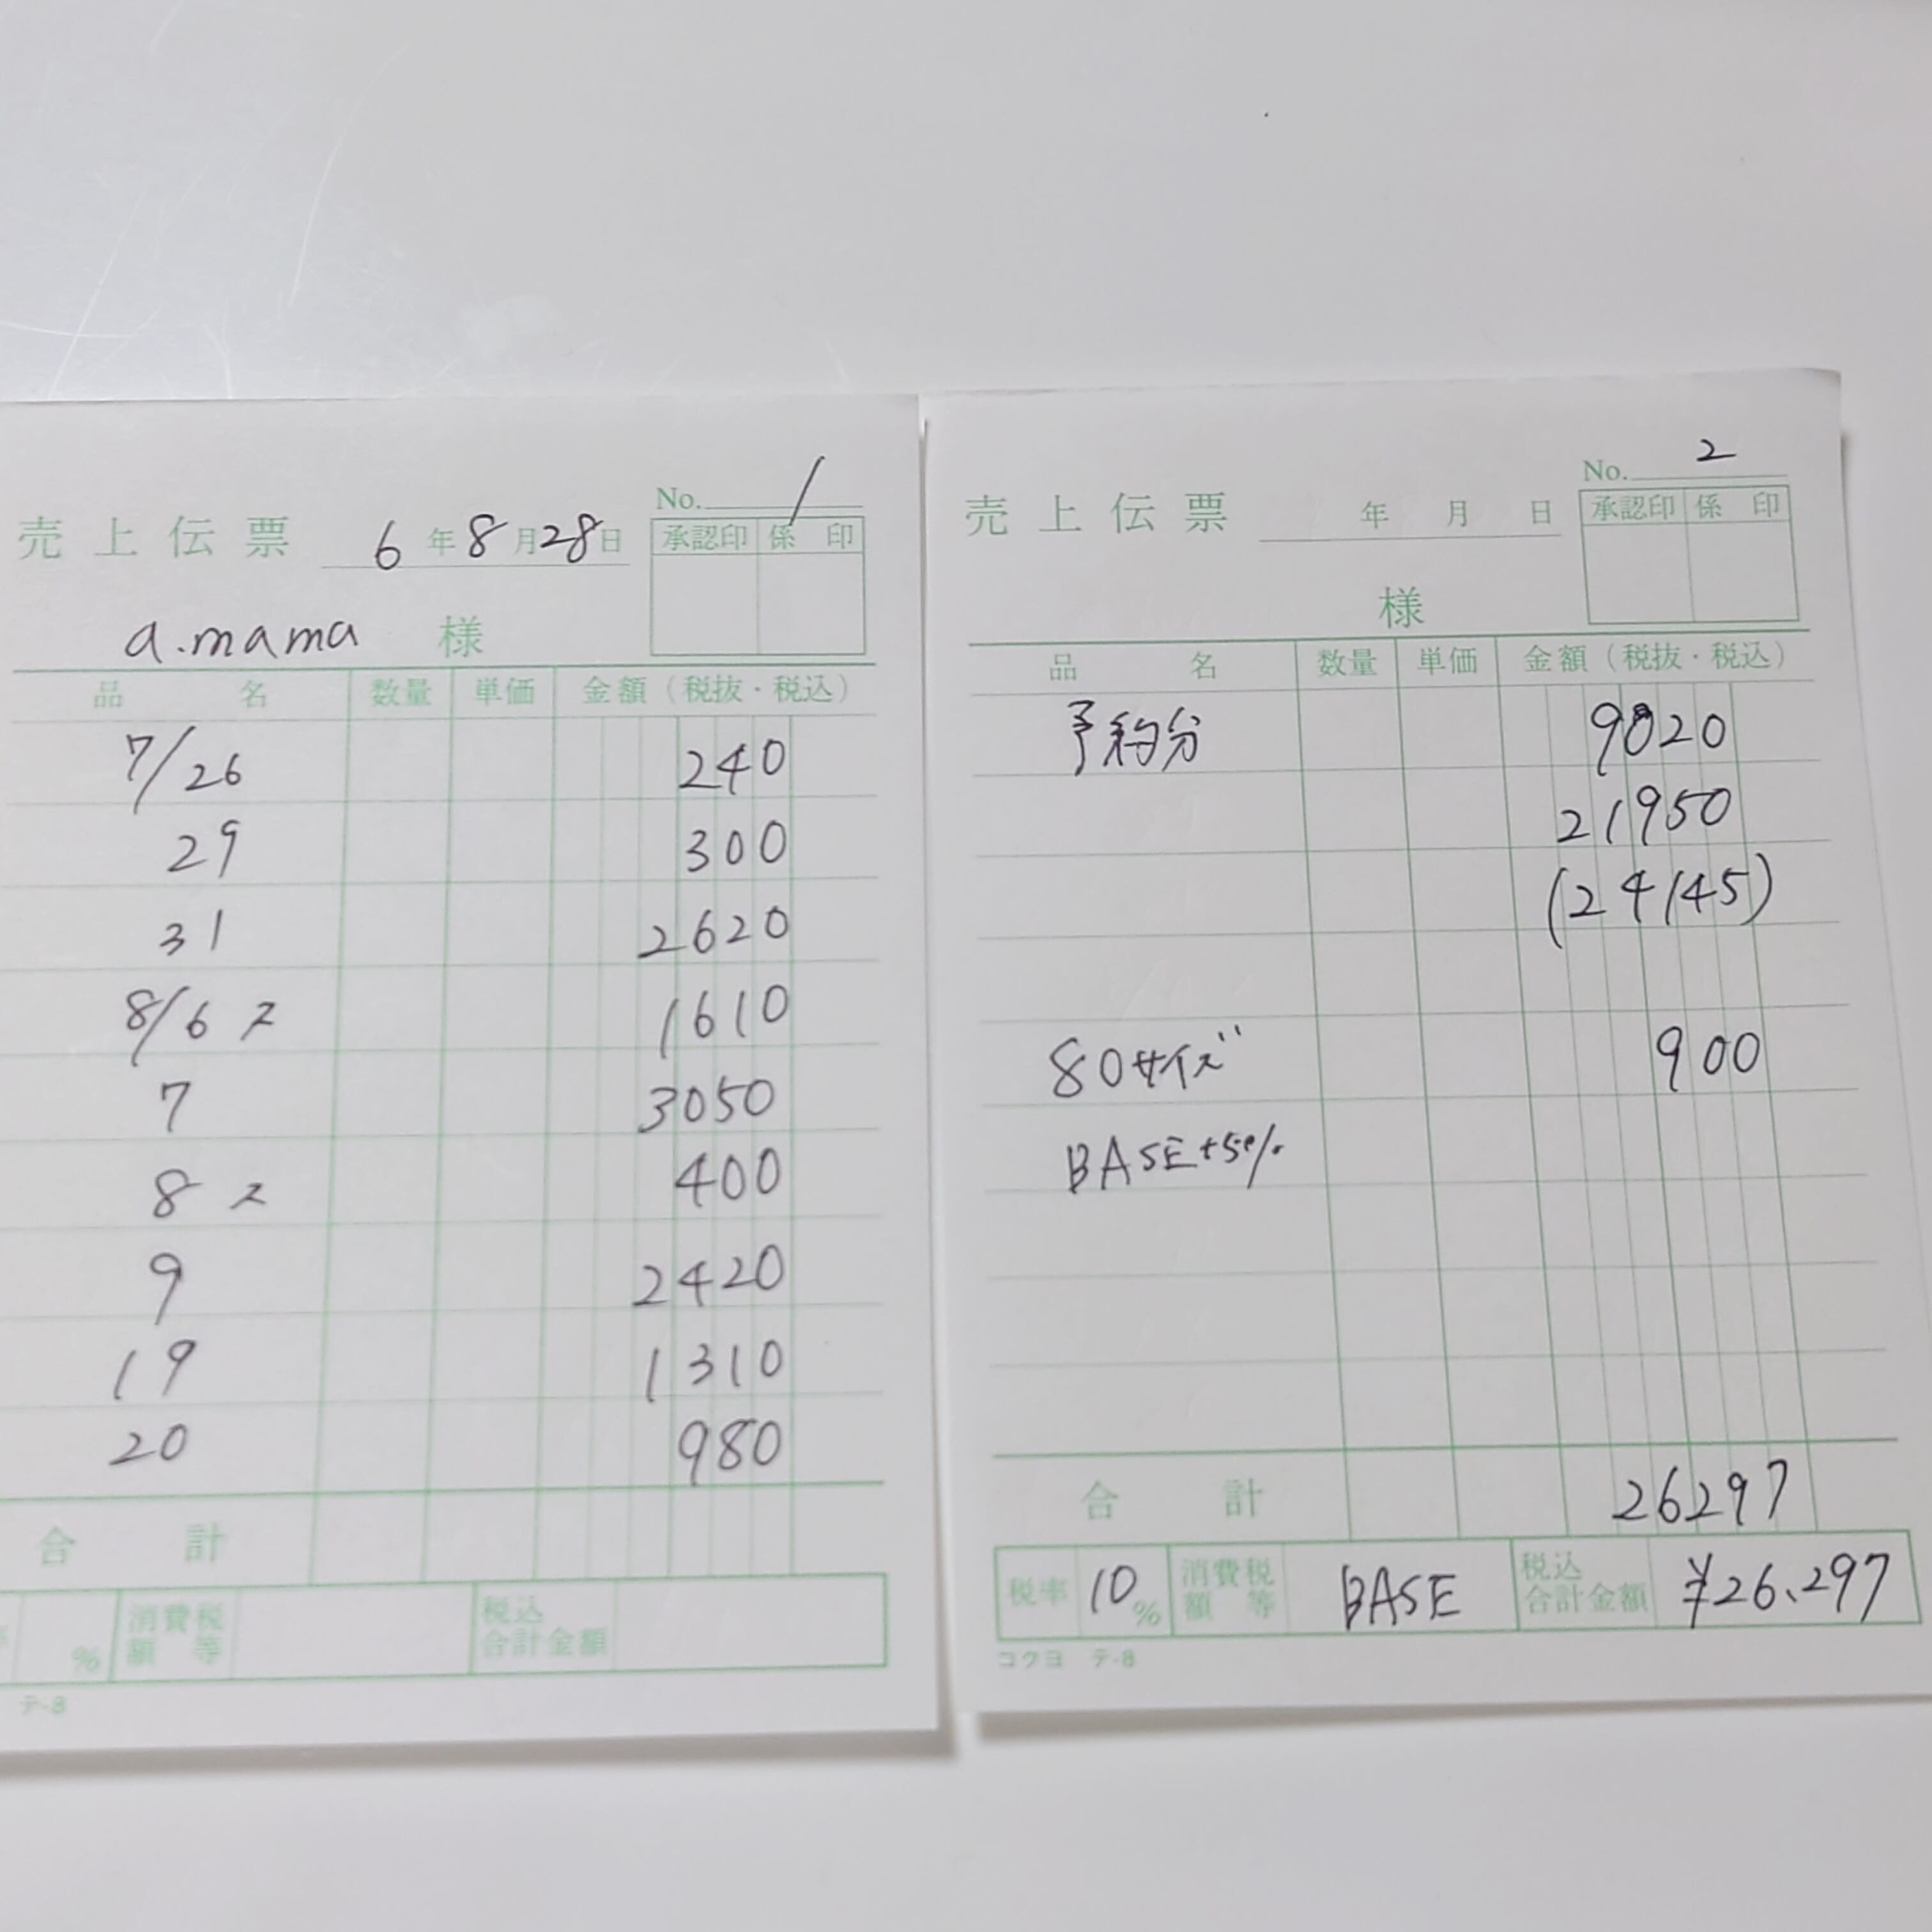 No. 1
売上伝票 6年8月28日
承認印 係印
a.mama 様
品名 数量 単価 金額（税抜・税込）
7/26 240
29 300
31 2620
8/6 ス 1610
7 3050
8 ス 400
9 2420
19 1310
20 980
合計
% 消費税額等 税込合計金額
テ-8
No. 2
売上伝票 年 月 日
承認印 係印
様
品名 数量 単価 金額（税抜・税込）
予約分 9020
21950
(24145)
80サイズ 900
BASE+5%
合計 26297
税率 10% 消費税額等 BASE 税込合計金額 ¥26.297
コクヨ テ-8